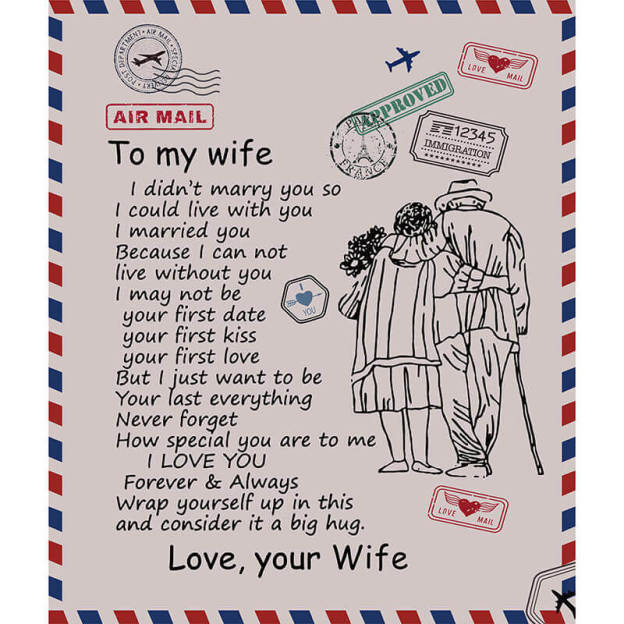 POST DEPARTMENT • AIR MAIL • SPECIAL
AIR MAIL
LOVE MAIL
APPROVED
PARIS
FRANCE
12345
IMMIGRATION
To my wife
I didn't marry you so
I could live with you
I married you
Because I can not
live without you
I may not be
your first date
your first kiss
your first love
But I just want to be
Your last everything
Never forget
How special you are to me
I LOVE YOU
Forever & Always
Wrap yourself up in this
and consider it a big hug.
Love, your Wife
I
YOU
LOVE MAIL